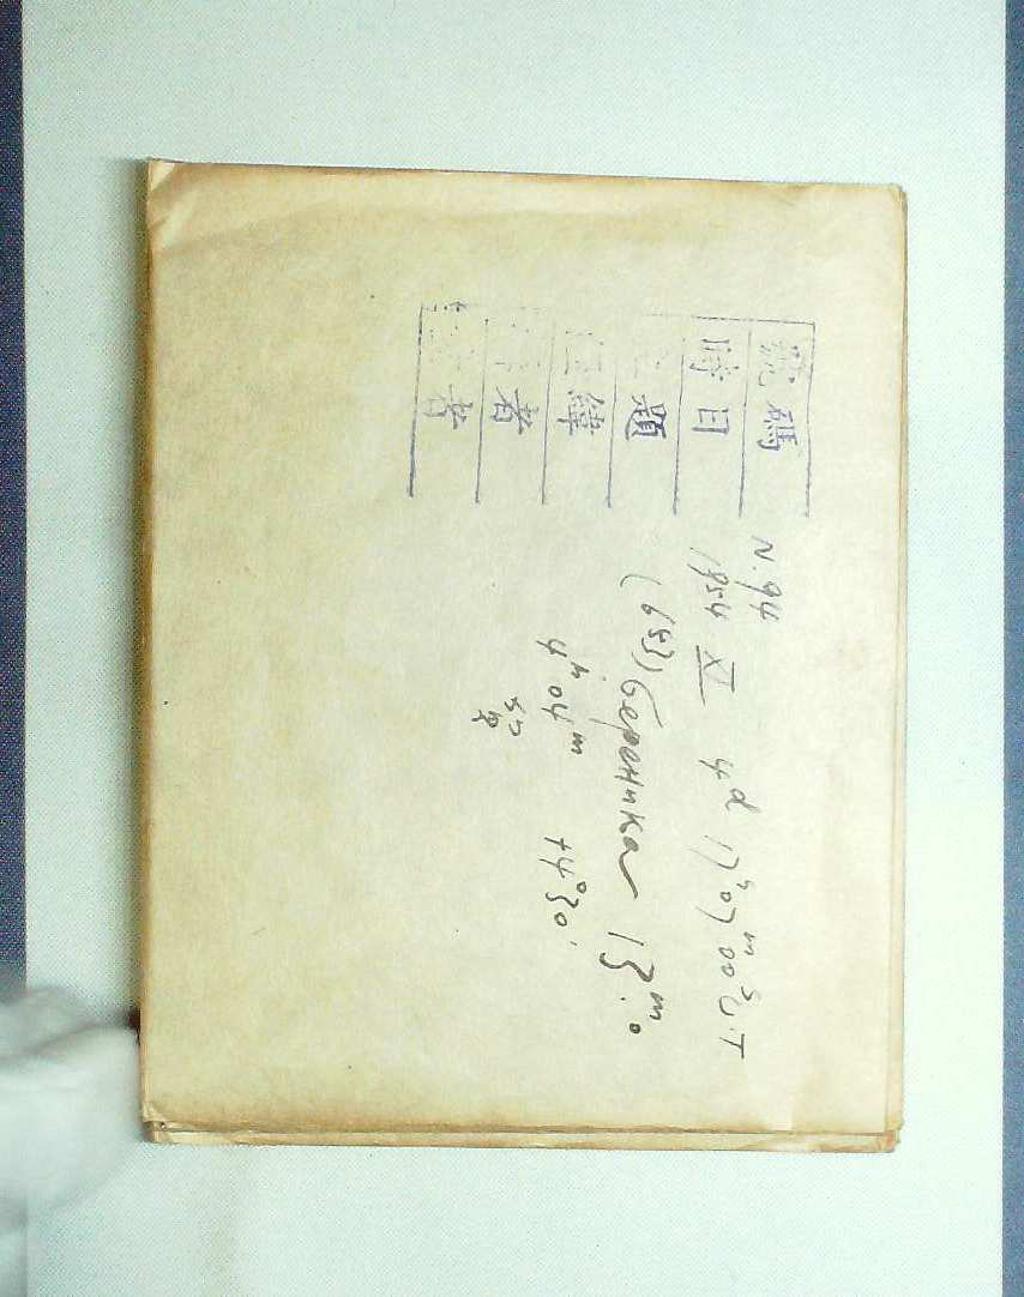 號碼 N.94
時日 1954 XI 4d 17h07m00s U.T
題 (653) Береника 13m.0
經緯 4h04m +4°30'
者
者